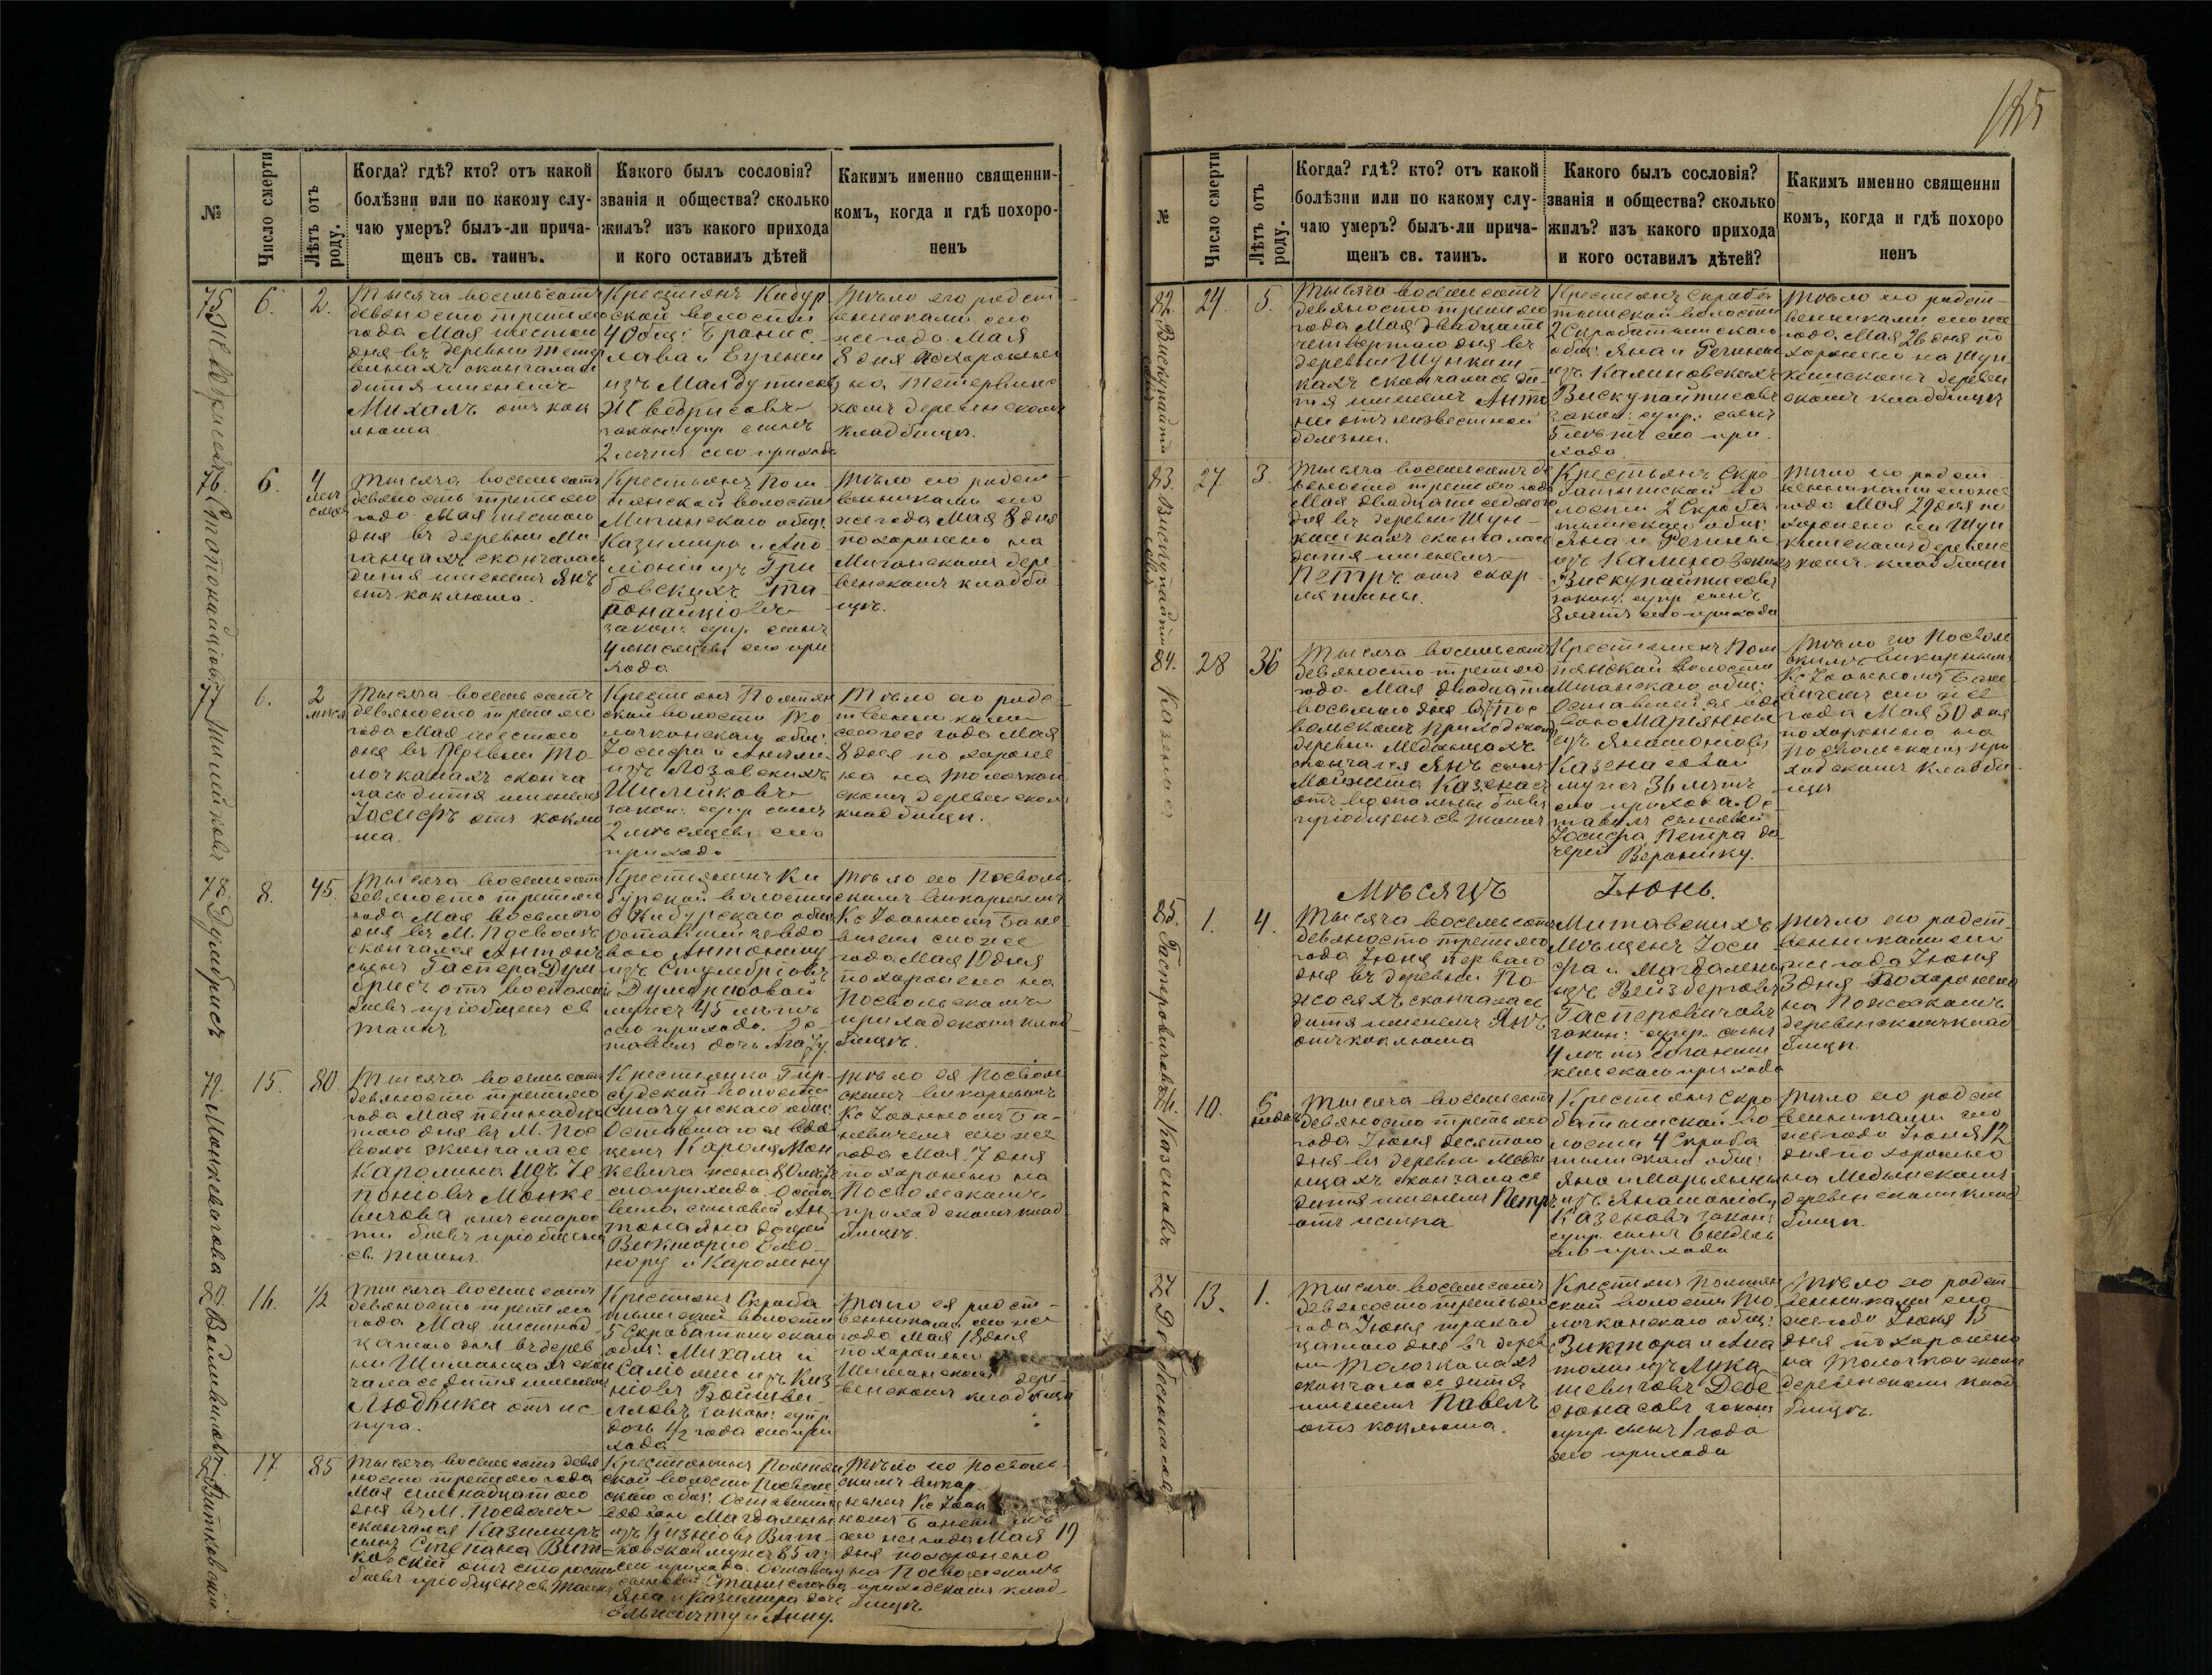 185
№
Число смерти
Лѣтъ отъ роду.
Когда? гдѣ? кто? отъ какой
болѣзни или по какому слу-
чаю умеръ? былъ-ли прича-
щенъ св. таинъ.
Какого былъ сословія?
званія и общества? сколько
жилъ? изъ какого прихода
и кого оставилъ дѣтей
Какимъ именно священни-
комъ, когда и гдѣ похоро-
ненъ
75
6.
2.
Тысяча восемьсотъ
девяносто третьяго
года Мая шестаго
дня въ деревни Тетер
винахъ скончалась
дитя именемъ
Михалъ отъ кок
люша
Крестьянъ Кибур
ской волости
4 Общ: Бронис
лава и Евгении
изъ
законн: супр. сынъ
2 лѣтъ сего прихода
Тѣло его родст
венниками сего
же года Мая
8 дня похоронено
на Тетервинс
комъ деревенскомъ
кладбищѣ.
76.
6.
4
мѣс
Тысяча восемьсотъ
девяносто третьяго
года Мая шестаго
дня въ деревни Ми
ганцахъ скончалась
дитя именемъ Янъ
отъ коклюша.
Крестьянъ Пом
пянской волости
Миганскаго общ:
Казимира и Апо
лоніи изъ Гри
бовскихъ
закон: супр. сынъ
4 мѣсяцевъ сего при
хода
Тѣло его родст
венниками сего
же года Мая 8 дня
похоронено на
Миганскомъ дере
венскомъ кладби
щѣ.
77
6.
2
мѣся
Тысяча восемьсотъ
девяносто третьяго
года Мая шестаго
дня въ деревни То
лочканахъ сконча
лась дитя именемъ
Іосифъ отъ коклю
ша.
Крестьянъ Помпян
ской волости То
лочканскаго общ:
Іосифа и
изъ Лозовскихъ
Шилейковъ
закон: супр. сынъ
2 мѣсяцевъ сего
прихода
Тѣло его родс
твенниками
сего же года Мая
8 дня похороне
на на Толочкан
скомъ деревенском
кладбищѣ.
78
Думбрисъ
8.
45.
Тысяча восемьсотъ
девяносто третьяго
года Мая восьмаго
дня въ М. Посволѣ
скончался Антонъ
сынъ Гаспера Дум
брисъ отъ воспален
бывъ пріобщенъ св
таинъ.
Крестьянинъ Ки
бурской волости
6 Кибурскаго общ:
Оставшейся вдо
вою Антонину
изъ Стумбріовъ
Думбрисовой
мужъ 45 лѣтъ
сего прихода. Ос
тавилъ дочь Агату.
Тѣло его Посволь
скимъ викарнымъ
Кс Іоанномъ Бане
вичемъ сего же
года Мая 10 дня
похоронено на
Посвольскомъ
приходскомъ клад
бищѣ.
79.
15.
80.
Тысяча восемьсотъ
девяносто третьяго
года Мая пятнадца
таго дня въ М. Пос
волѣ скончалась
Каролина изъ Че
поніовъ Монке
вичова отъ старос
ти бывъ пріобщена
св. таинъ.
Крестьянка Гир
судской волости
Стачунскаго общ:
Оставшагося вдов
цемъ Кароля Мон
кевича жена 80 лѣтъ
сего прихода. Оста
вила сыновей Ан
тона Яна дочерей
Викторію Елео
нору и Каролину
Тѣло ея Посволь
скимъ викарнымъ
Кс Іоанномъ Ба
невичемъ сего же
года Мая 17 дня
похоронено на
Посвольскомъ
приходскомъ клад
бищѣ.
80
16.
½
Тысяча восемьсотъ
девяносто третьяго
года Мая шестнад
цатаго дня въ дерев
ни Шиманцахъ скон
чалась дитя именемъ
Людвика отъ ис
пуга.
Крестьянъ Скроба
тышской волости
5 Скробатышскаго
общ: Михала и
Саломеи изъ Киз
ніовъ
закон: супр
дочь ½ года сего при
хода
Тѣло ея родст
венниками сего же
года Мая 18 дня
похоронено
Шиманскомъ дере
венскомъ кладбищѣ
Витковскій
17
85
Тысяча восемьсотъ девя
носто третьяго года
Мая семнадцатаго
дня въ М. Посволѣ
скончался Казимиръ
сынъ Степана Вит
ковскій отъ старости
бывъ пріобщенъ св. таинъ
Крестьянинъ Помпян
ской волости Посволь
скаго общ: Оставшейся
вдовою Магдалены
изъ Кизніовъ Вит
ковской мужъ 85 л:
сего прихода. Оставилъ
сыновей Станислава
Яна и Казимира дочь
Эльжбету и Анну.
Тѣло его Посволь
скимъ викар
нымъ Кс Іоан
номъ Баневичемъ
сего же года Мая 19
дня похоронено
на Посвольскомъ
приходскомъ клад
бищѣ
№
Число смерти
Лѣтъ отъ роду.
Когда? гдѣ? кто? отъ какой
болѣзни или по какому слу-
чаю умеръ? былъ-ли прича-
щенъ св. таинъ.
Какого былъ сословія?
званія и общества? сколько
жилъ? изъ какого прихода
и кого оставилъ дѣтей?
Какимъ именно священни
комъ, когда и гдѣ похоро
ненъ
82.
24.
5.
Тысяча восемьсотъ
девяносто третьяго
года Мая двадцать
четвертаго дня въ
деревни Шунким
кахъ скончалась ди
тя именемъ Анто
ни отъ неизвестной
болезни.
Крестьянъ Скроба
тышской волости
2 Скробатышскаго
общ: Яна и Регины
изъ Калиновскихъ
Вискупайтисовъ
закон: супр: сынъ
5 лѣтъ сего при
хода
Тѣло его родст
венниками сего же
года Мая 26 дня по
хоронено на Шун
кишскомъ деревен
скомъ кладбищѣ
83.
27.
3.
Тысяча восемьсотъ де
вяносто третьяго года
Мая двадцать седмаго
дня въ деревни Шун
кишкахъ скончалась
дитя именемъ
Петръ отъ скар
лятины.
Крестьянъ Скро
батышской во
лости 2 Скроба
тышскаго общ:
Яна и Регины
изъ Калиновских
Вискупайтисовъ
закон: супр сынъ
3 лѣтъ сего прихода
Тѣло его родст
венниками сего же
года Мая 29 дня по
хоронено на Шун
кишскомъ деревенс
комъ кладбищѣ
84.
Казенасъ
28
36
Тысяча восемьсотъ
девяносто третьяго
года Мая двадцать
восьмаго дня въ Пос
вольскомъ Приходѣ
деревни Медынцахъ
скончался Янъ сынъ
Казенасъ
отъ воспаленія бывъ
пріобщенъ св таинъ
Крестьянинъ Пом
пянской волости
Миганскаго общ:
Оставшейся вдо
вою Марьянны
изъ
Казенасовой
мужъ 36 лѣтъ
сего прихода. Ос
тавилъ сыновей
Іосифа, Петра до
черей Веронику.
Тѣло его Посволь
скимъ викарнымъ
Кс Іоанномъ Бане
вичемъ сего же
года Мая 30 дня
похоронено на
Посвольскомъ при
ходскомъ кладби
щѣ
Мѣсяцъ Іюнь.
85.
Гасперовичъ
1.
4.
Тысяча восемьсотъ
девяносто третьяго
года Іюня перваго
дня въ деревни По
жосяхъ скончалась
дитя именемъ Янъ
отъ коклюша
Митавскихъ
Мѣщанъ Іоси
фа и Магдалены
изъ
Гасперовичовъ
закон: супр. сынъ
4 лѣтъ
прихода
Тѣло его родст
венниками сего
же года Іюня
3 дня похоронено
на
деревенскомъ клад
бищѣ.
86.
Казеновъ
10.
6
недѣль
Тысяча восемьсотъ
девяносто третьяго
года Іюня десятаго
дня въ деревни Меды
нцахъ скончалась
дитя именемъ Петръ
отъ
Крестьянъ Скро
батышской во
лости 4 Скроба
тышскаго общ:
Яна и Марьянны
изъ
Казеновъ закон:
супр. сынъ 6 недѣль
сего прихода
Тѣло его родст
венниками сего
же года Іюня 12
дня похоронено
на Медынскомъ
деревенскомъ клад
бищѣ.
87
13.
1.
Тысяча восемьсотъ
девяносто третьяго
года Іюня тринад
цатаго дня въ дерев
ни Толочканахъ
скончалась дитя
именемъ Павелъ
отъ коклюша.
Крестьянъ Помпян
ской волости То
лочканскаго общ:
Виктора и Ана
толіи изъ Лука
шевичовъ Дебе
сюнасовъ закон:
супр. сынъ 1 года
сего прихода
Тѣло его родст
венниками сего
же года Іюня 15
дня похоронено
на Толочканскомъ
деревенскомъ клад
бищѣ.